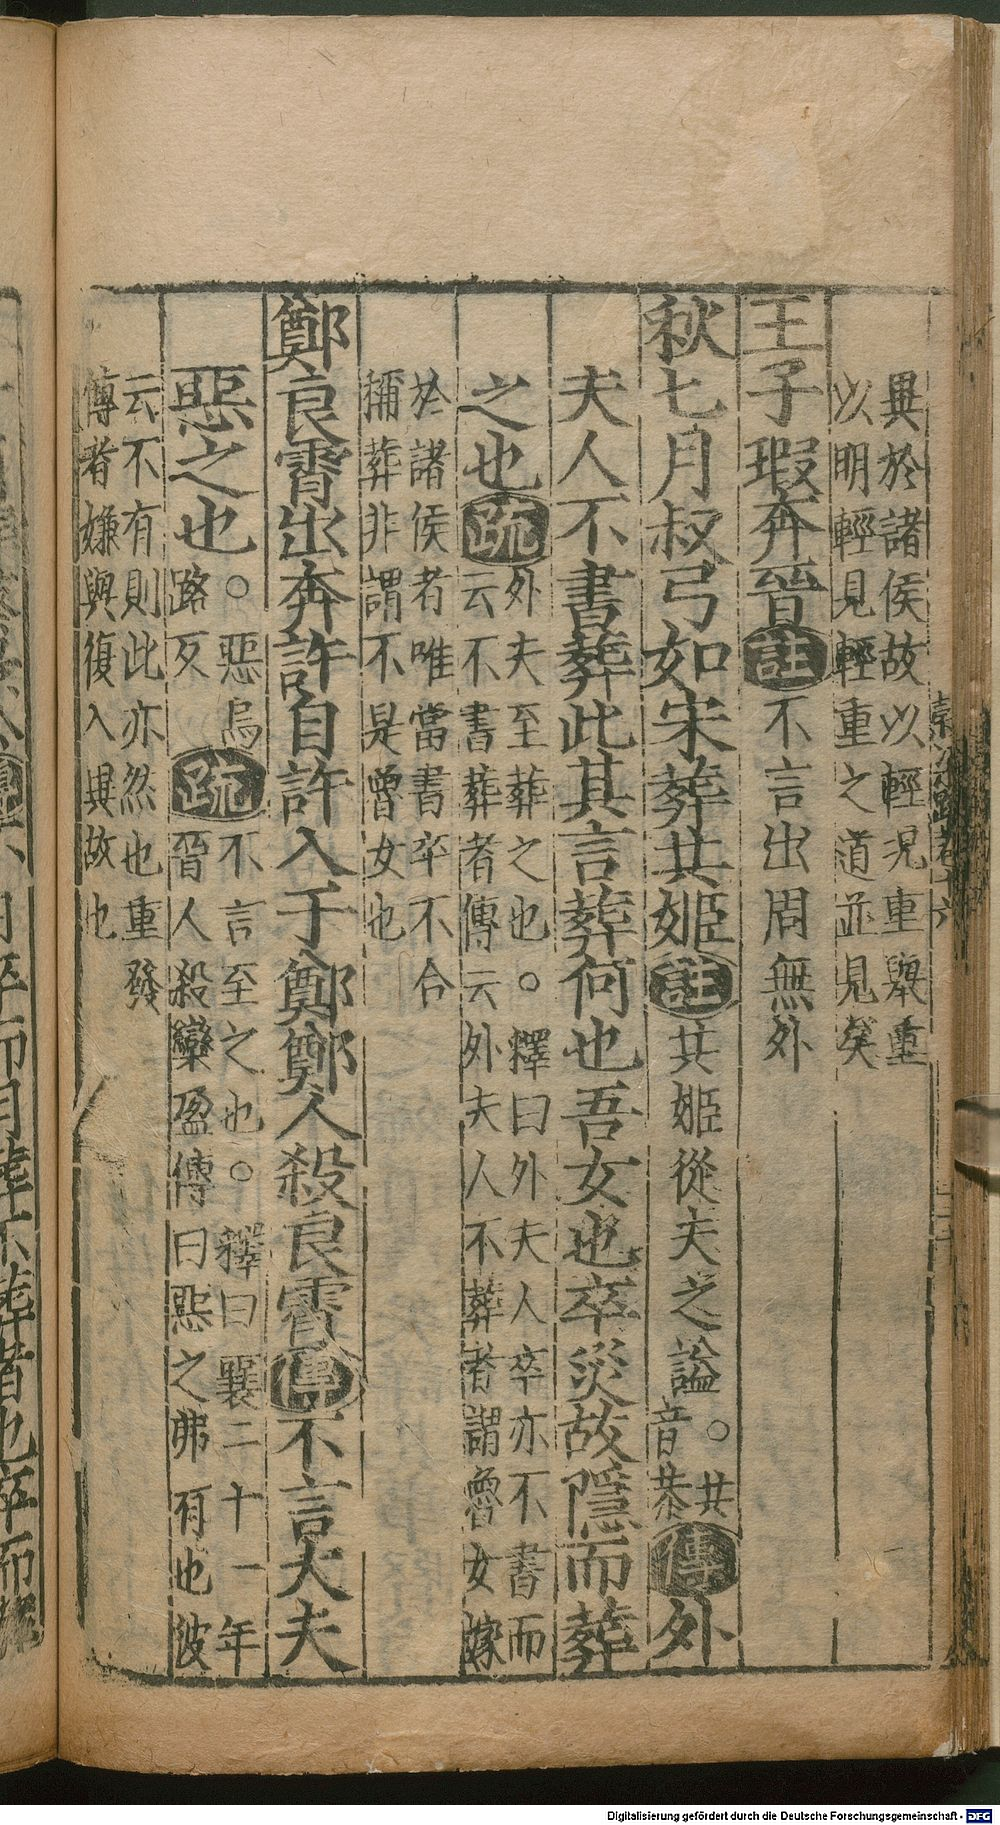 異於諸侯故以輕況重舉重
以明輕見輕重之道並見矣
王子瑕奔晉註不言出周無外
秋七月叔弓如宋葬共姬註共姬從夫之謚○共
音恭傳外
夫人不書葬此其言葬何也吾女也卒災故隱而葬
之也疏外夫至葬之也○釋曰外夫人卒亦不書而
云不書葬者傳云外夫人不葬者謂魯女嫁
於諸侯者唯當書卒不合
稱葬非謂不是魯女也
鄭良霄出奔許自許入于鄭鄭人殺良霄傳不言大夫
惡之也○惡烏
路反疏不言至之也○釋曰襄二十一年
晉人殺欒盈傳曰惡之弗有也彼
云不有則此亦然也重發
傳者嫌與復入異故也
Digitalisierung gefördert durch die Deutsche Forschungsgemeinschaft - DFG